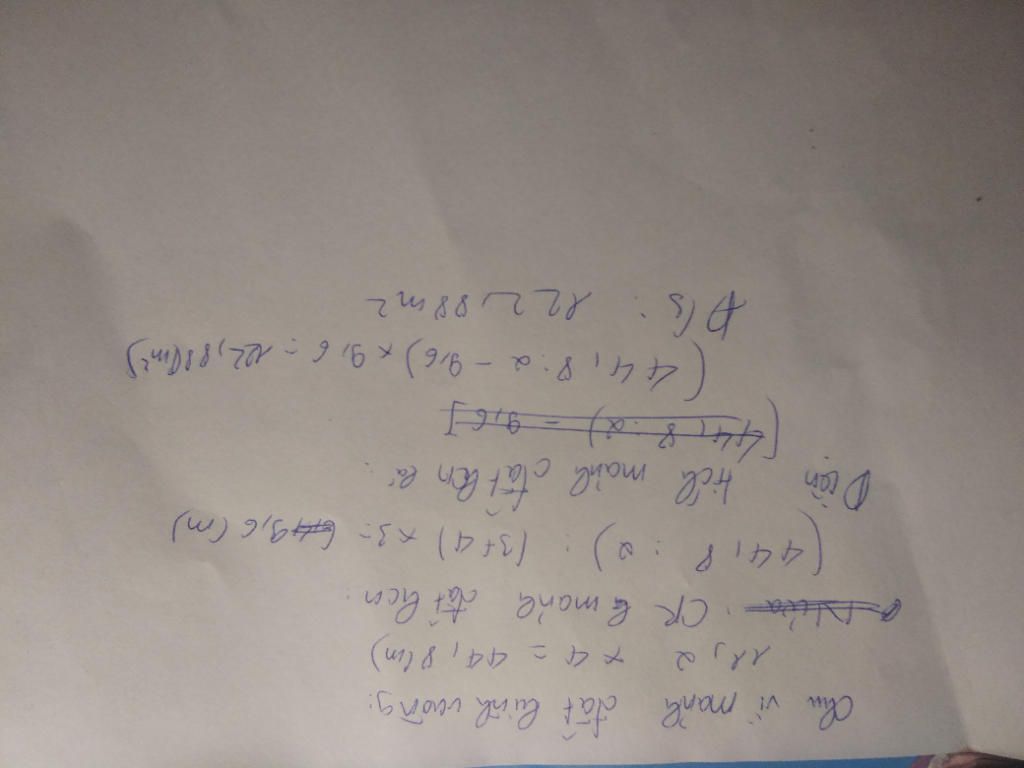 Chu vi mảnh đất hình vuông:
11,2 x 4 = 44,8 (m)
CR mảnh đất hcn:
(44,8 : 2) : (3+4) x 3 = 9,6 (m)
Diện tích mảnh đất hcn là:
(44,8 : 2) - 9,6]
(44,8 : 2 - 9,6) x 9,6 = 122,88 (m²)
Đ/s : 122,88 m²